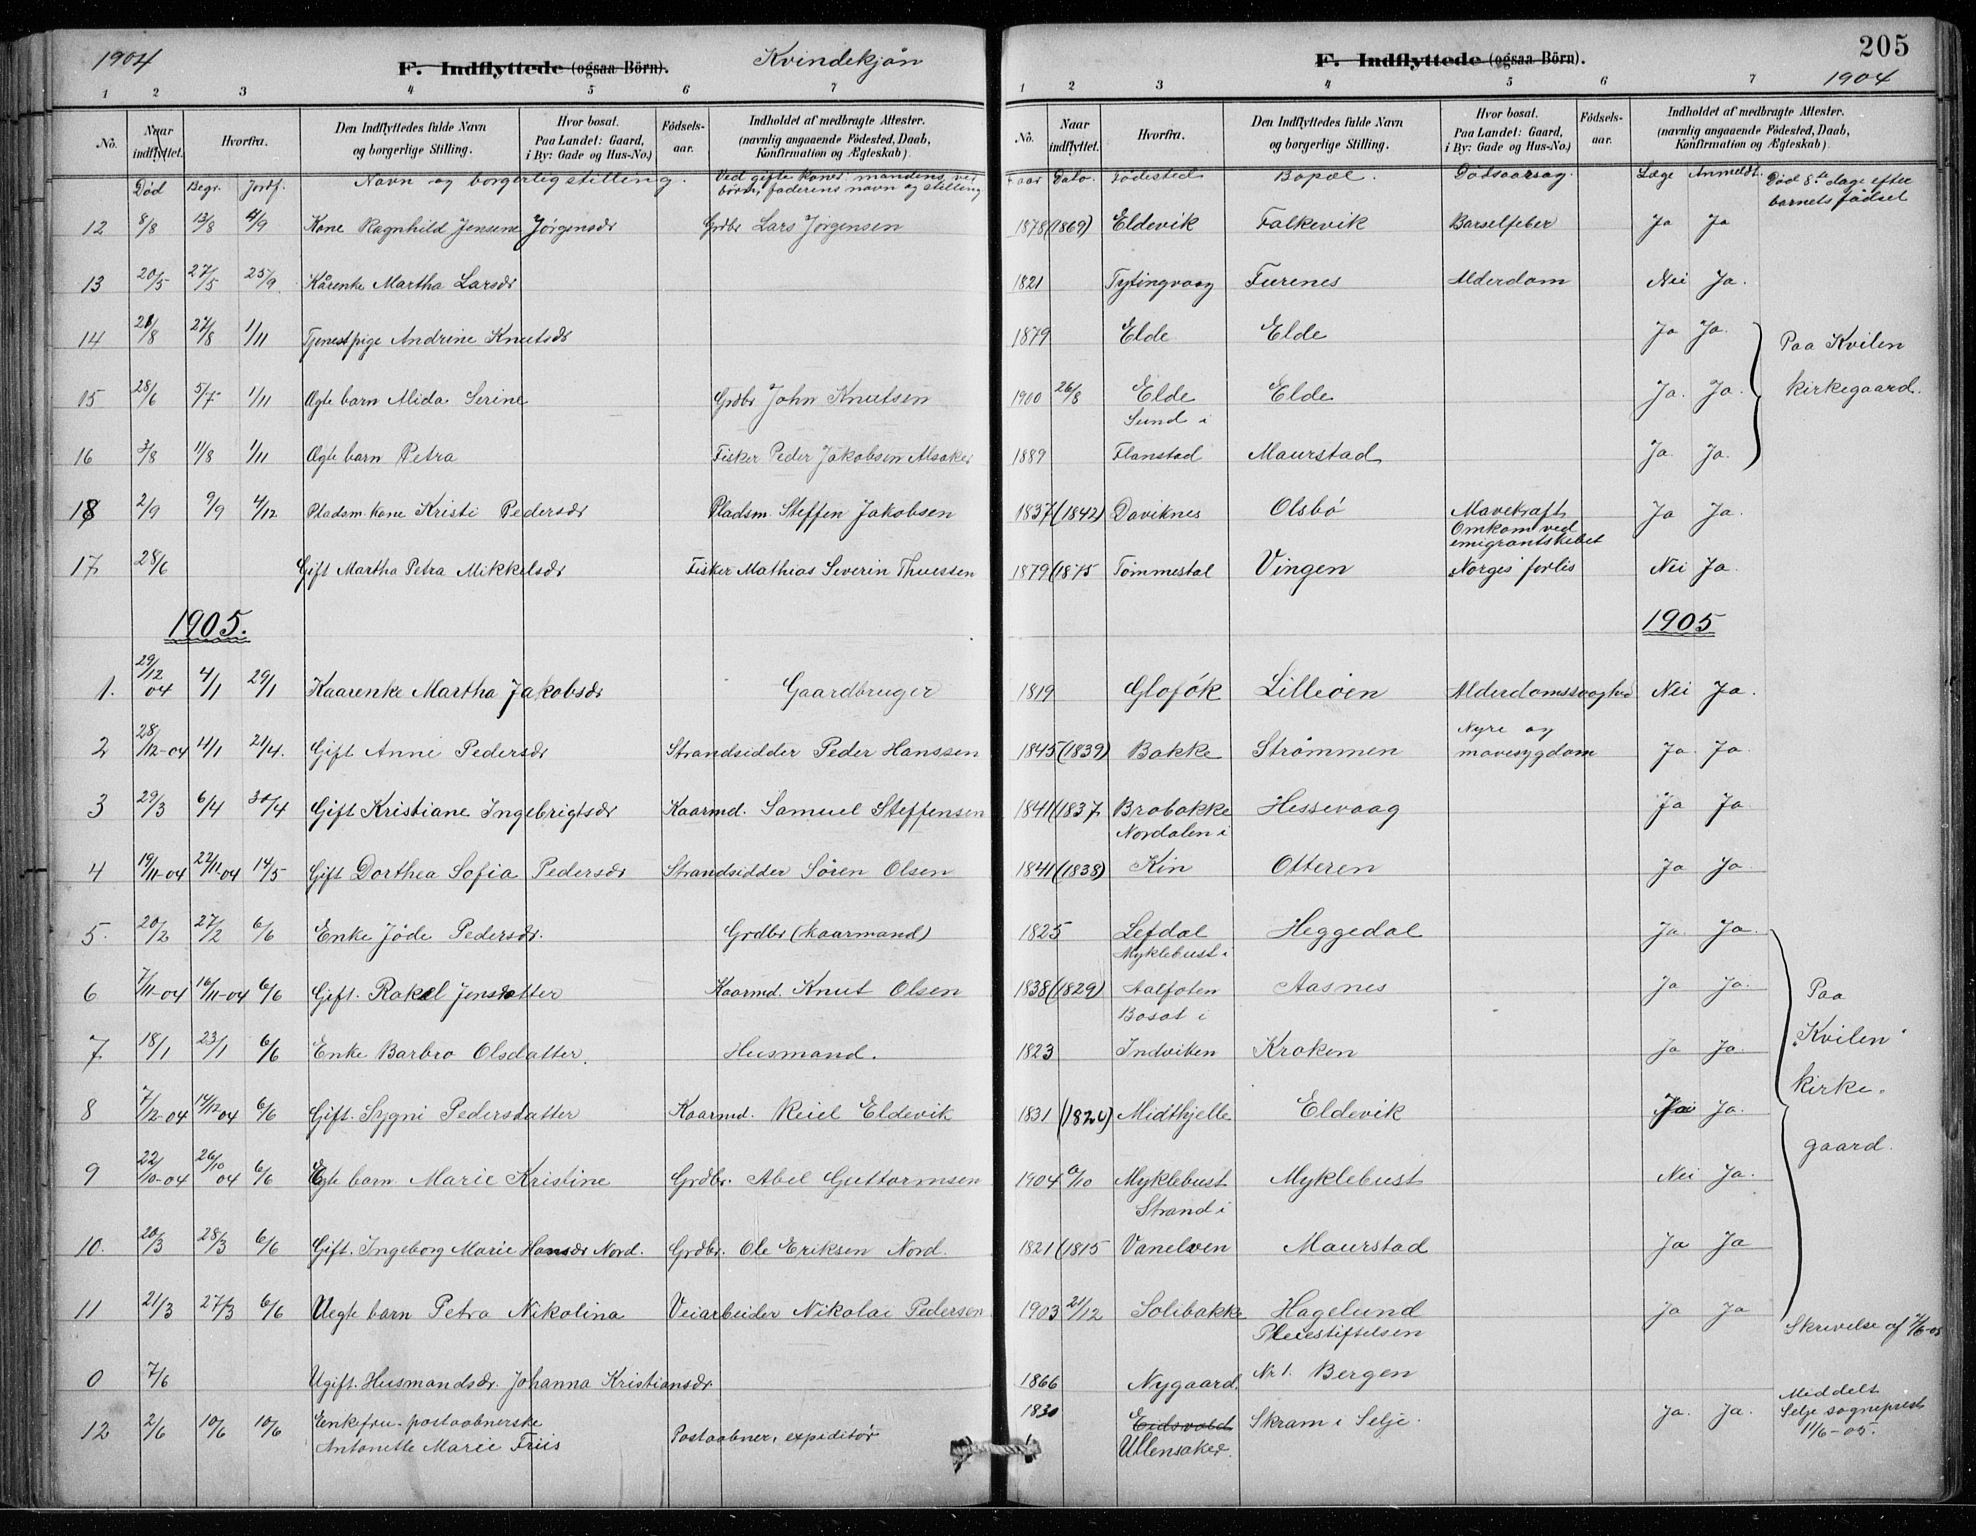 1904 F. Indflyttede (ogsaa Börn). Kvindekjøn
1 2 3 4 5 6 7
No. Naar indflyttet. Hvorfra. Den Indflyttedes fulde Navn og borgerlige Stilling. Hvor bosat. Paa Landet: Gaard, i By: Gade og Hus-No.) Födsels-aar. Indholdet af medbragte Attester. (navnlig angaaende Födested, Daab, Konfirmation og Ægteskab)
Død Begr. Jordf. Navn og borgerlig stilling. Ved gifte koner mandens, ved børn, faderens navn og stilling
12 8/8 13/8 4/9 Kone Ragnhild Jensine Jørgensdr Grdbr Lars Jørgensen
13 20/5 27/5 25/9 Kårenke Martha Larsdr
14 21/8 27/8 1/11 Tjenestpige Andrine Knutsdr
15 28/6 5/7 1/11 Ægte barn Alida Serine Grdbr John Knutsen
16 3/8 11/8 1/11 Ægte barn Petra Fisker Peder Jakobsen Alsaker
18 2/9 9/9 4/12 Pladsm. kone Kristi Pedersdr Pladsm. Steffen Jakobsen
17 28/6 Gift Martha Petra Mikkelsdr Fisker Mathias Severin Thuessen
1905.
1. 29/12 04 4/1 29/1 Kaarenke Martha Jakobsdr Gaardbruger
2 28/12-04 4/1 21/4. Gift Anne Pedersdr Strandsidder Peder Hanssen
3 29/3 6/4 30/4 Gift Kristiane Ingebrigtsdr Kaarmd. Samuel Steffensen
4 19/11-04 22/11-04 14/5 Gift Dorthea Sofia Pedersdr Strandsidder Søren Olsen
5. 20/2 27/2 6/6 Enke Jøde Pedersdr. Grdbr (kaarmand)
6 7/11-04 16/11-04 6/6 Gift. Rakel Jensdatter Kaarmd. Knut Olsen
7 18/1 23/1 6/6 Enke Barbro Olsdatter. Husmand.
8 7/12-04 14/12 04 6/6 Gift. Sygni Pedersdatter Kaarmd. Reiel Eldevik
9 22/10-04 26/10 04 6/6 Egte barn Marie Kristine Grdbr. Abel Guttormsen
10. 20/3 28/3 6/6 Gift. Ingeborg Marie Hansdr Nord. Grdbr. Ole Eriksen Nord.
11 21/3 27/3 6/6 Uegte barn Petra Nikolina Veiarbeider Nikolai Pedersen
0 7/6 Ugift. Husmandsdr. Johanna Kristiansdr
12 2/6 10/6 10/6 Eenkefru-postaabnerske Antonette Marie Friis Postaabner, expeditør
205
F. Indflyttede (ogsaa Börn). 1904
1 2 3 4 5 6 7
No. Naar indflyttet. Hvorfra. Den Indflyttedes fulde Navn og borgerlige Stilling. Hvor bosat. Paa Landet: Gaard, i By: Gade og Hus-No.) Födsels-aar. Indholdet af medbragte Attester. (navnlig angaaende Födested, Daab, Konfirmation og Ægteskab)
Faar Dato. Fødested Bopæl. Dødsaarsag. Læge Anmeldt. Død 8de dage efter barnets fødsel
1878 (1869) Eldevik Falkevik Barselfeber Ja Ja
1821 Tytingvaag Furenes Alderdom Nei Ja.
1879 Elde Elde Ja Ja.
1900 26/8 Elde Elde Ja. Ja.
Paa Kvilen kirkegaard.
1889 Sund i Flanstad Maurstad Ja. Ja.
1837 (1842) Daviknes Olsbø Mavekræft Ja Ja.
1879 (1875 Tømmestøl Vingen Omkom ved emigrantskibet Norges forlis Nei Ja.
1905
1819 Gloføk Lilleøen Alderdomssvaghed Nei Ja.
1845 (1839) Bakke Strømmen Nyre og mavesygdom Ja Ja.
1841 (1837 Brobakke Hessevaag Ja Ja.
1841 (1838) Nordalen i Kin Otteren Ja Ja
1825 Lefdal Heggedal Ja. Ja.
1838 (1829) Myklebust i Aalfoten Aasnes Ja Ja.
1823 Bosat i Indviken Kroken Ja Ja.
1831 (1820) Midthjelle Eldevik Ja.
1904 6/10 Myklebust Myklebust Nei Ja.
1821 (1815 Strand i Vanelven Maurstad Ja Ja
1903 21/12 Solibakke Hagelund Ja Ja
Paa "Kvilen" kirkegaard.
Skrivelse af 7/6-05
1866 Nygaard, Pleiestiftelsen Nr 1. Bergen
1830 Eidsvold Ullensaker. Skram i Selje. Ja. Ja. Meddelt Selje sogneprest 11/6-05.